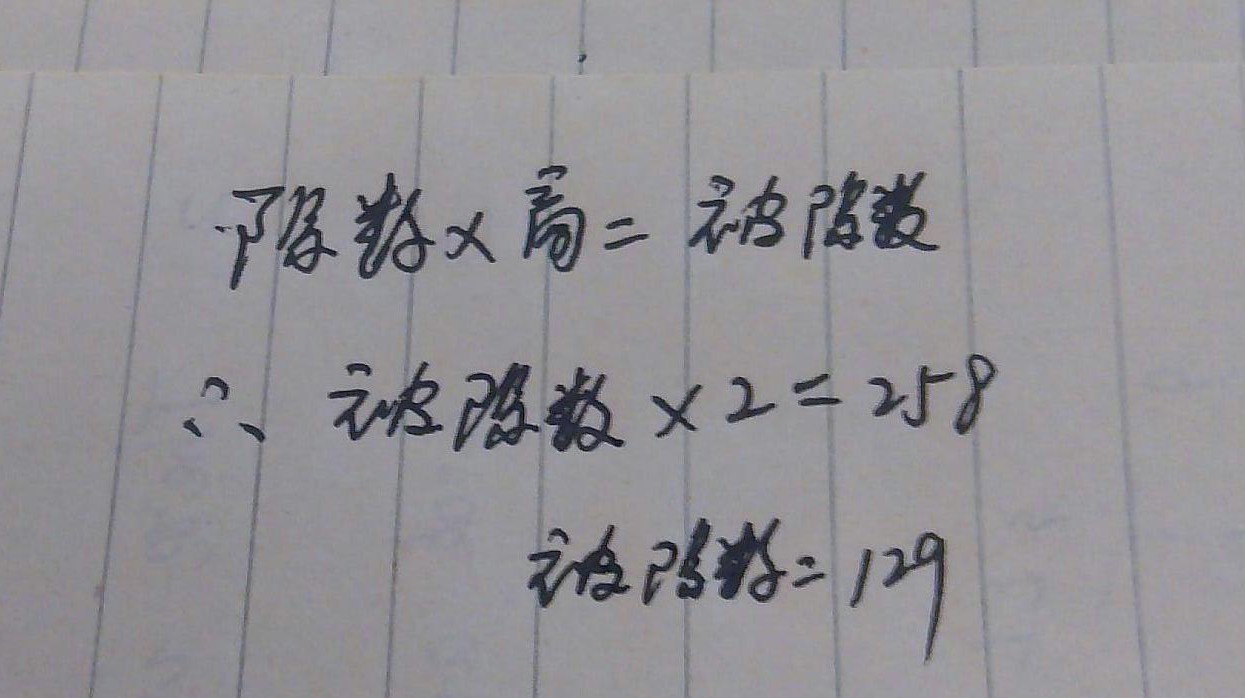 除数×商=被除数
∴ 被除数×2=258
被除数=129